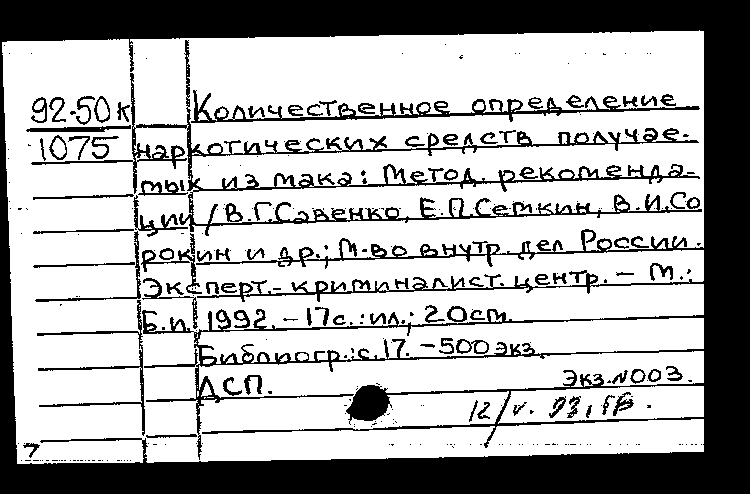 92-50к Количественное определение
1075 наркотических средств получае-
мых из мака: Метод. рекоменда-
ции / В.Г.Савенко, Е.П.Семкин, В.И.Со
рокин и др.; М-во внутр. дел России.
Эксперт.-криминалист. центр. - М.:
Б.и. 1992. - 17с.: ил.; 20см.
Библиогр.: с.17. - 500 экз.
ДСП. Экз.N003.
12/V. 93.
7